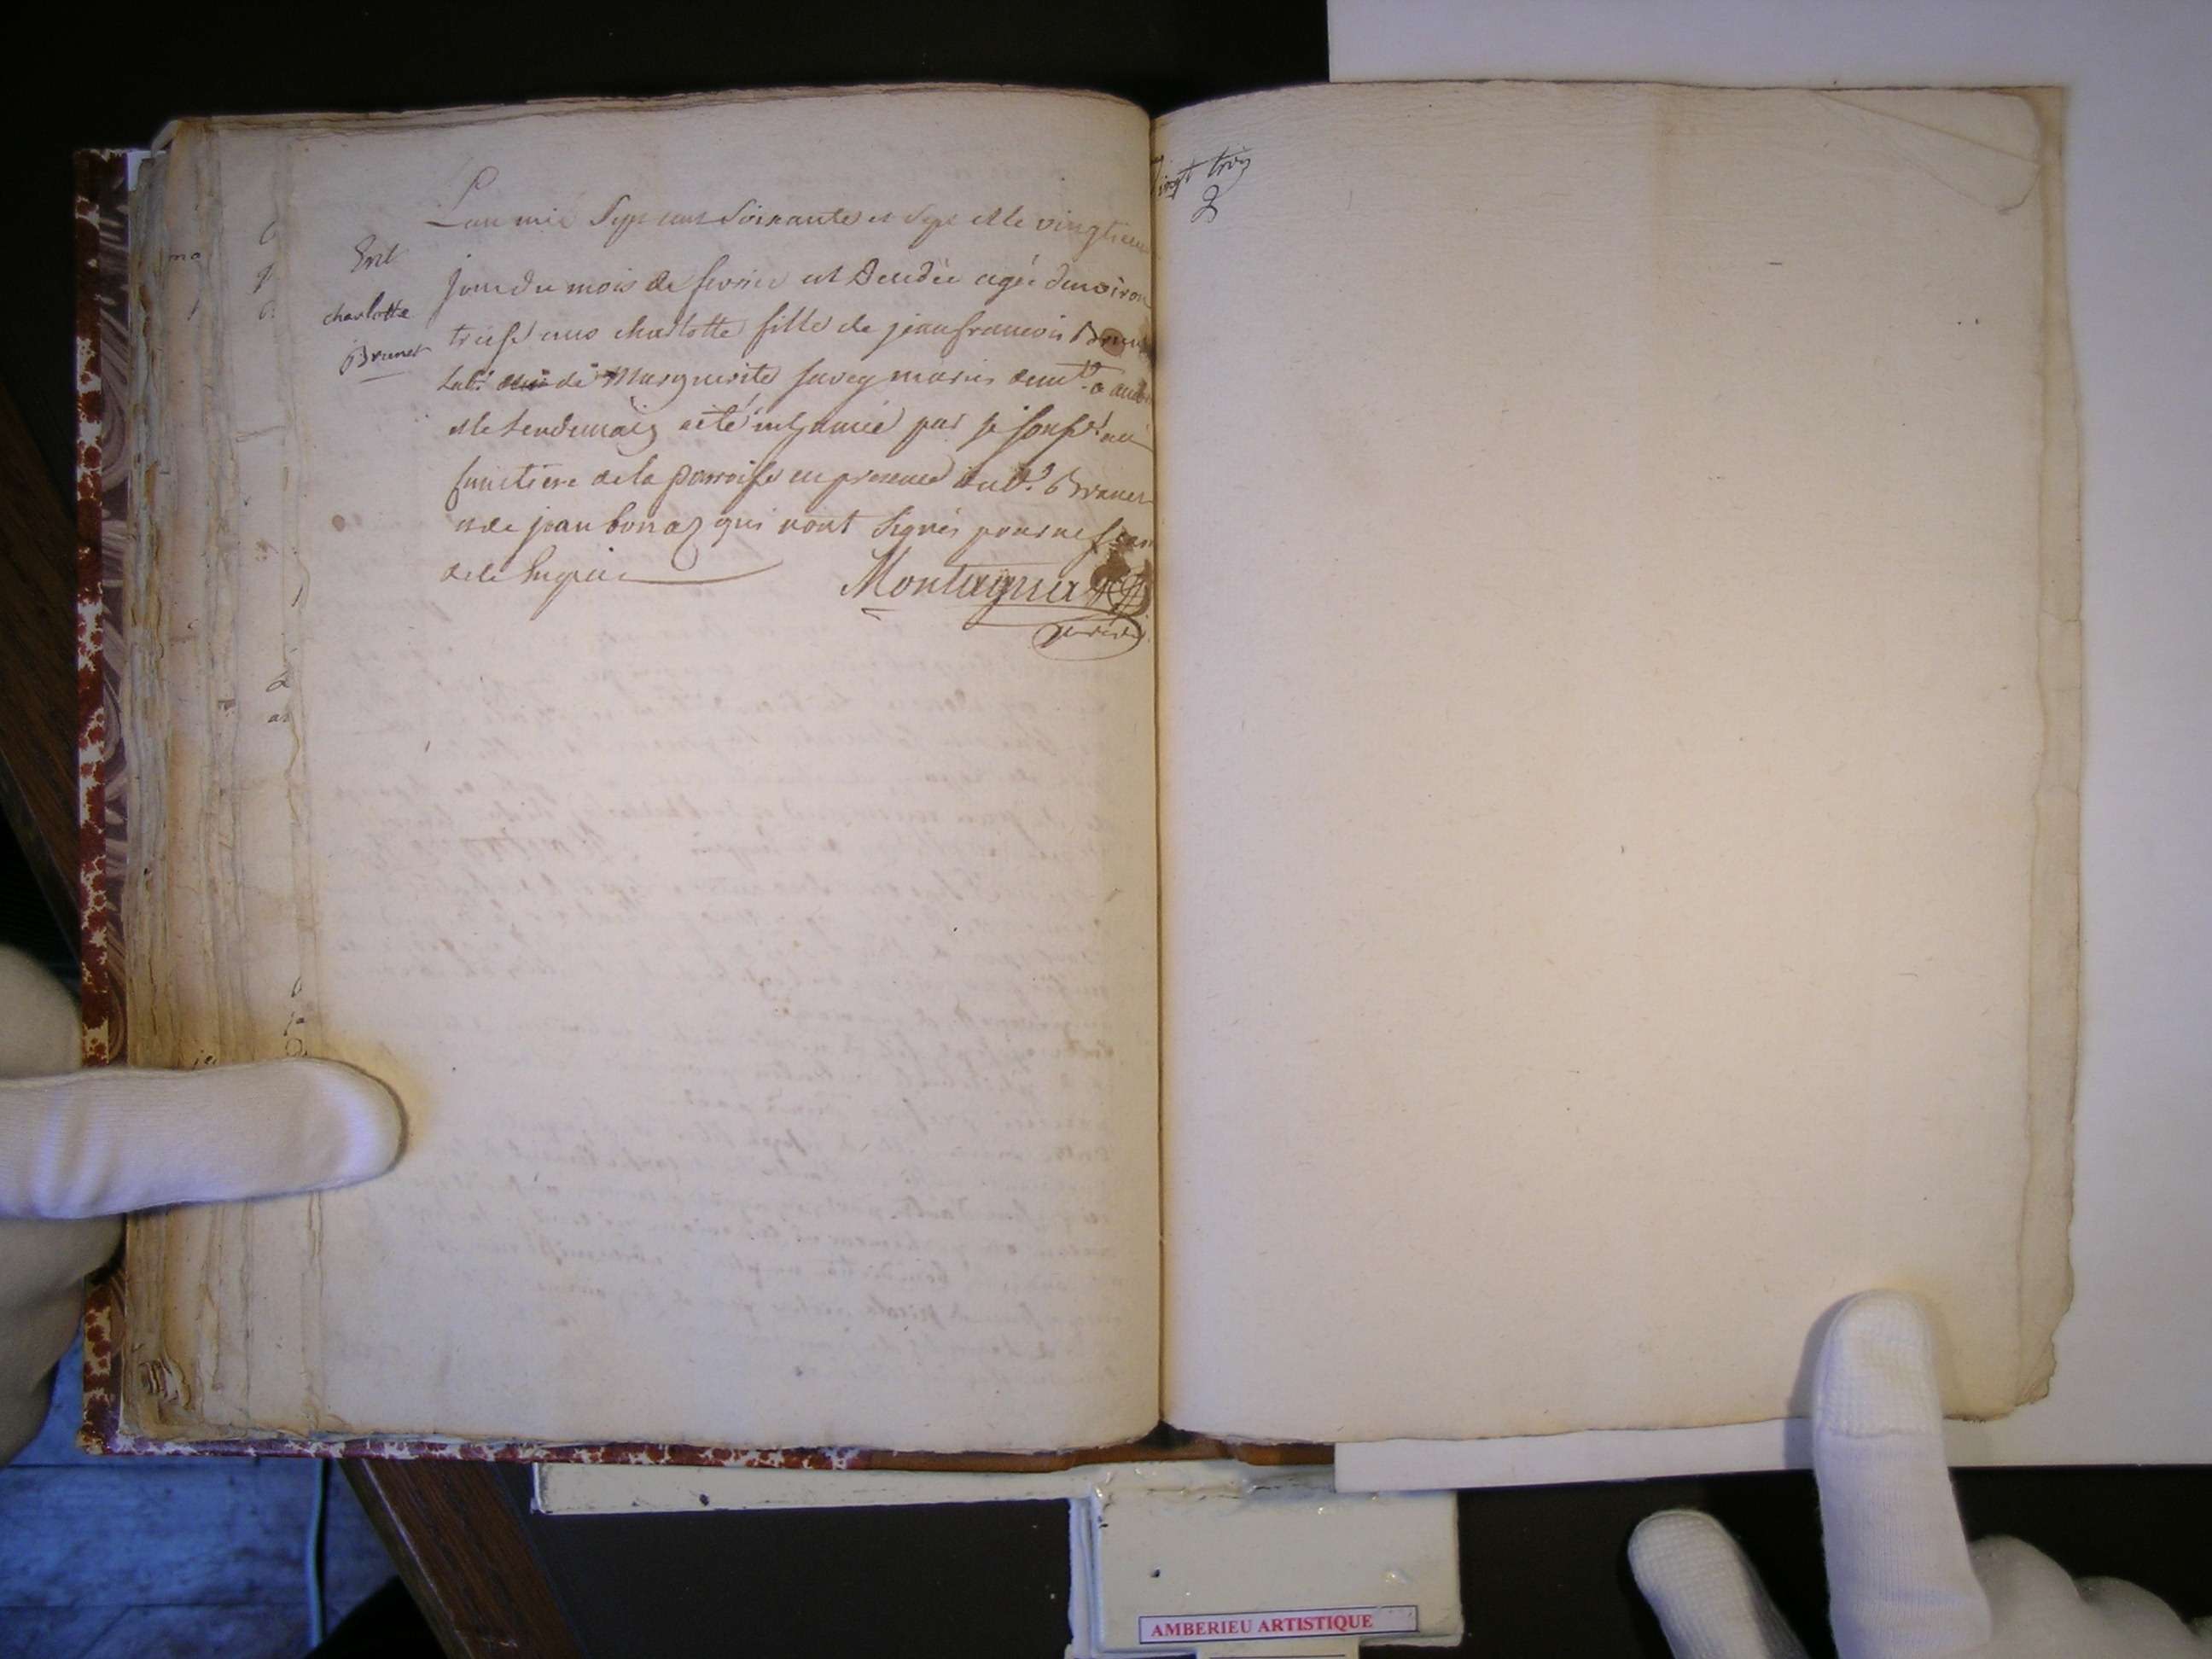 Ent
charlotte
Brunet
L'an mil Sept cent Soixante et Sept et le vingtieme
jour du mois de fevrier est decedée agée d'environ
ans charlotte fille de jean francois Brunet
Lab.r de Marguerite savey mariés
et le Lendemain a été inhumée par je souss.é au
cimitiere de la parroisse en presence dud.t Brunet
et de jean bonaz qui n'ont Signés pour ne scav
de ce Enquis
Montagnat
vingt trois
2
AMBERIEU ARTISTIQUE